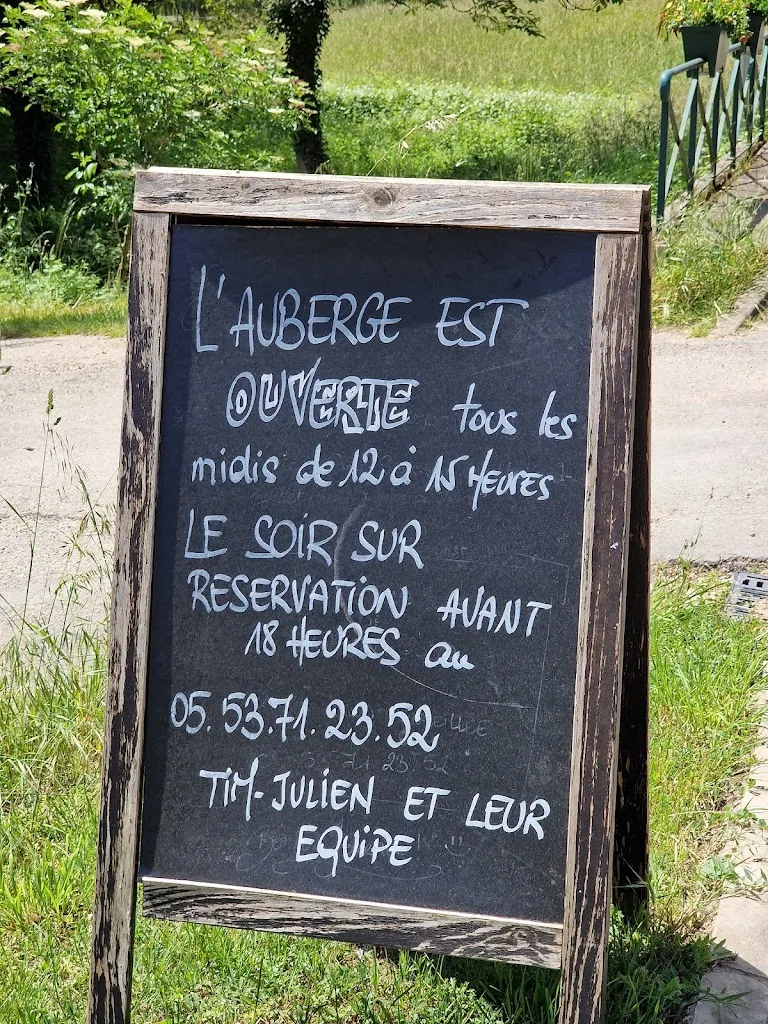 L'AUBERGE EST
OUVERTE tous les
midis de 12 à 15 HEURES
LE SOIR SUR
RESERVATION AVANT
18 HEURES au
05.53.71.23.52
TIM-JULIEN ET LEUR
EQUIPE